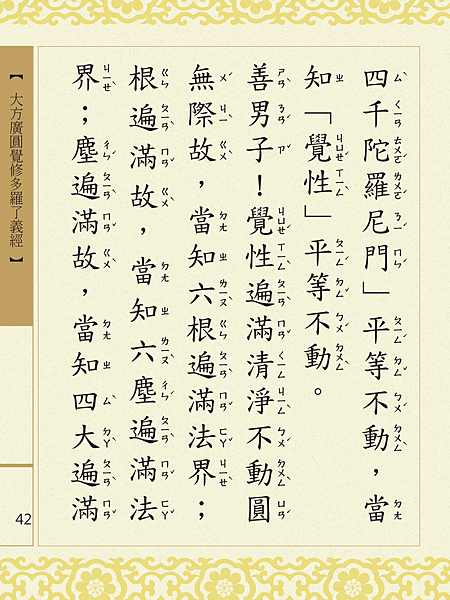 四千陀羅尼門」平等不動，當
知「覺性」平等不動。
善男子！覺性遍滿清淨不動圓
無際故，當知六根遍滿法界；
根遍滿故，當知六塵遍滿法
界；塵遍滿故，當知四大遍滿
【大方廣圓覺修多羅了義經】
42